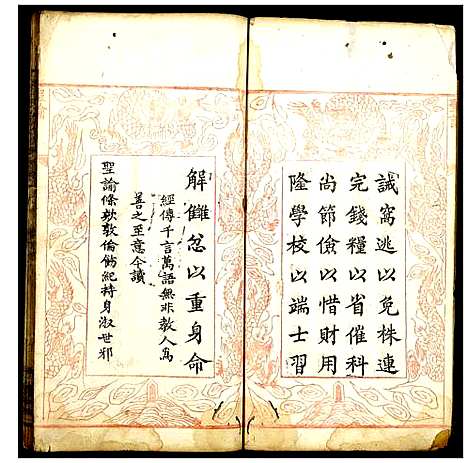 誡窩逃以免株連
完錢糧以省催科
尚節儉以惜財用
隆學校以端士習
解讎忿以重身命
經傳千言萬語無非教人為
善之至意合讀
聖諭條欵敦倫飭紀持身淑世邪